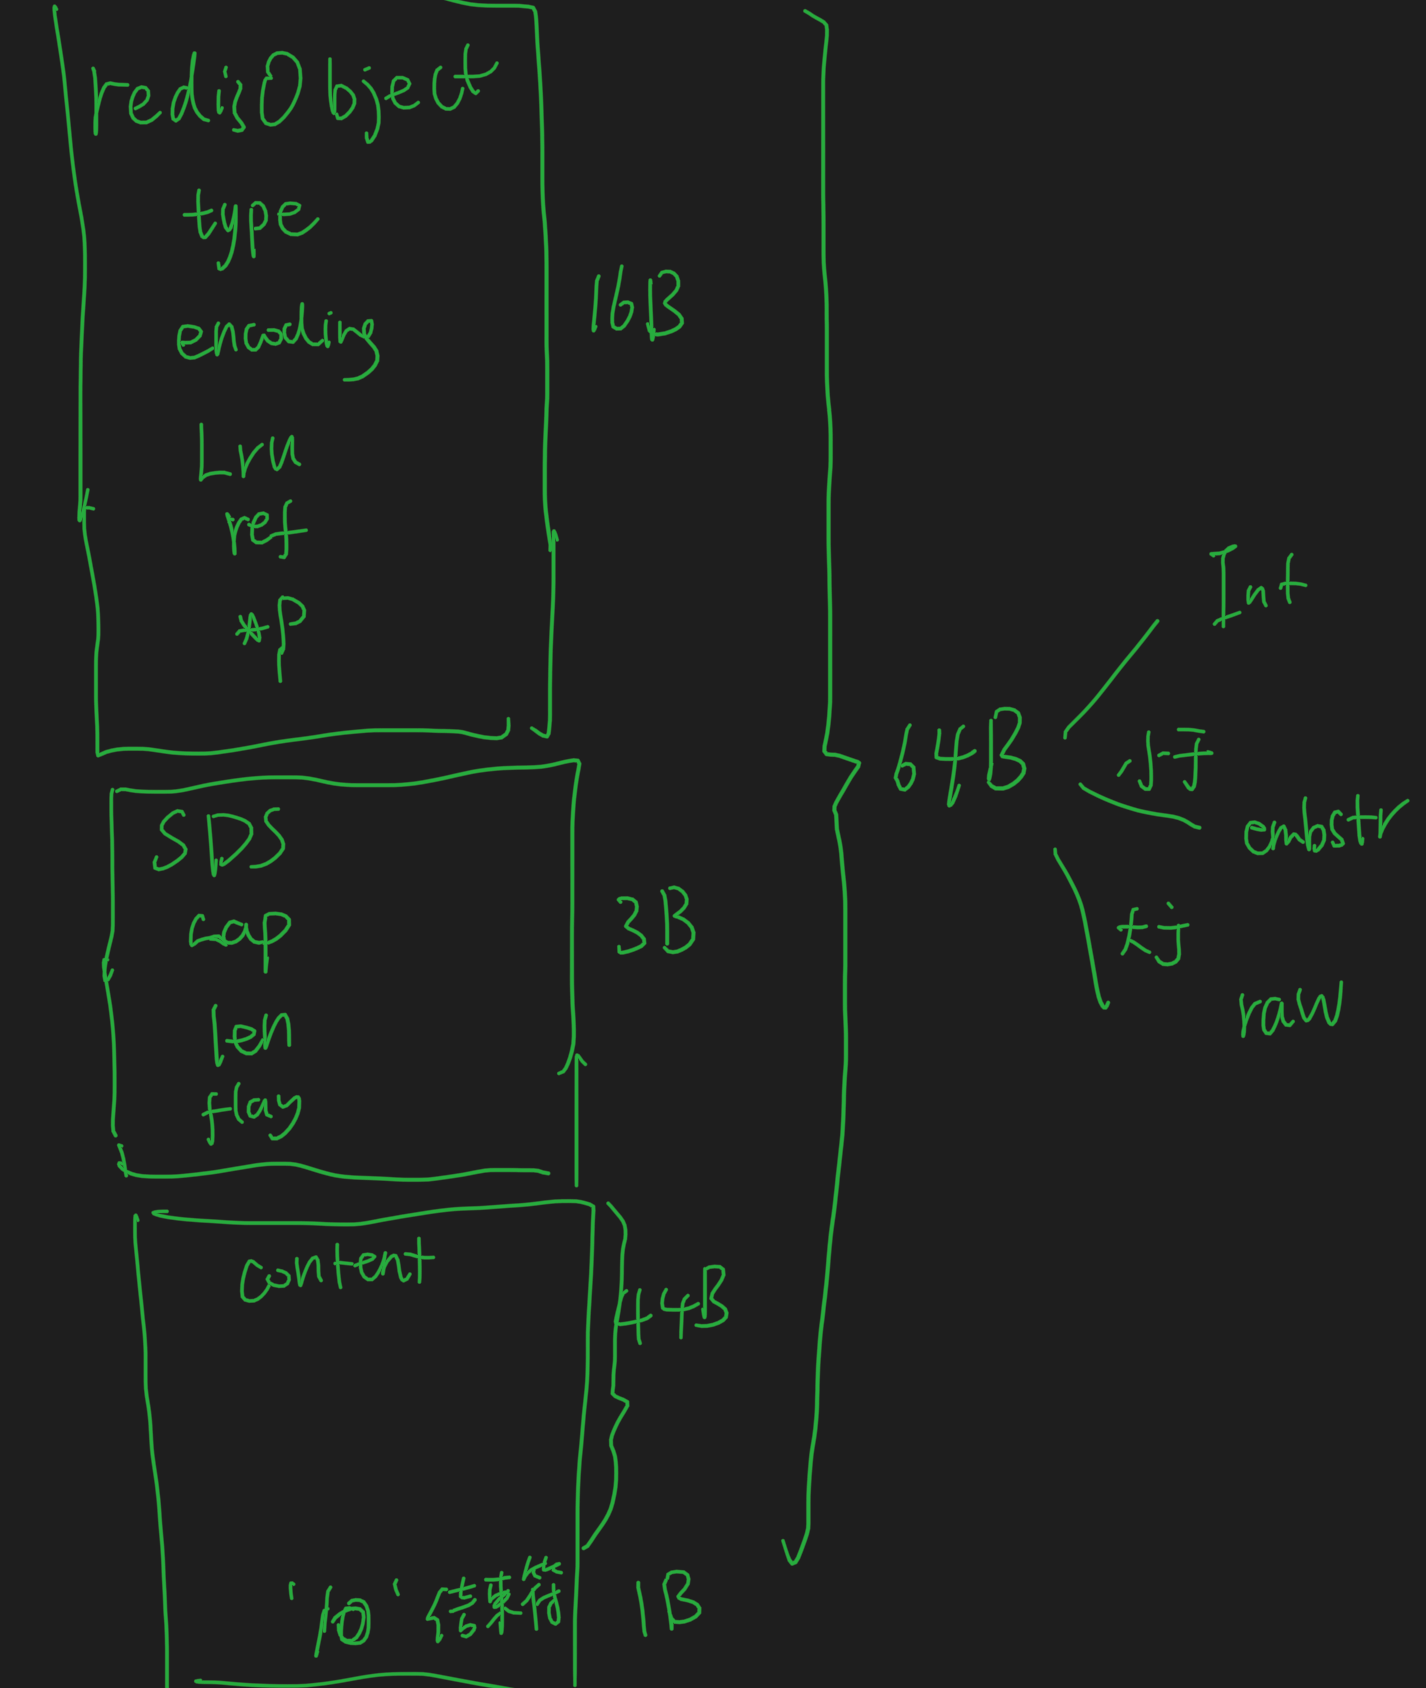 redisObject
type
encoding
Lru
ref
*P
16B
SDS
cap
len
flag
3B
content
44B
'\0' 结束符
1B
64B
Int
小于
embstr
大于
raw